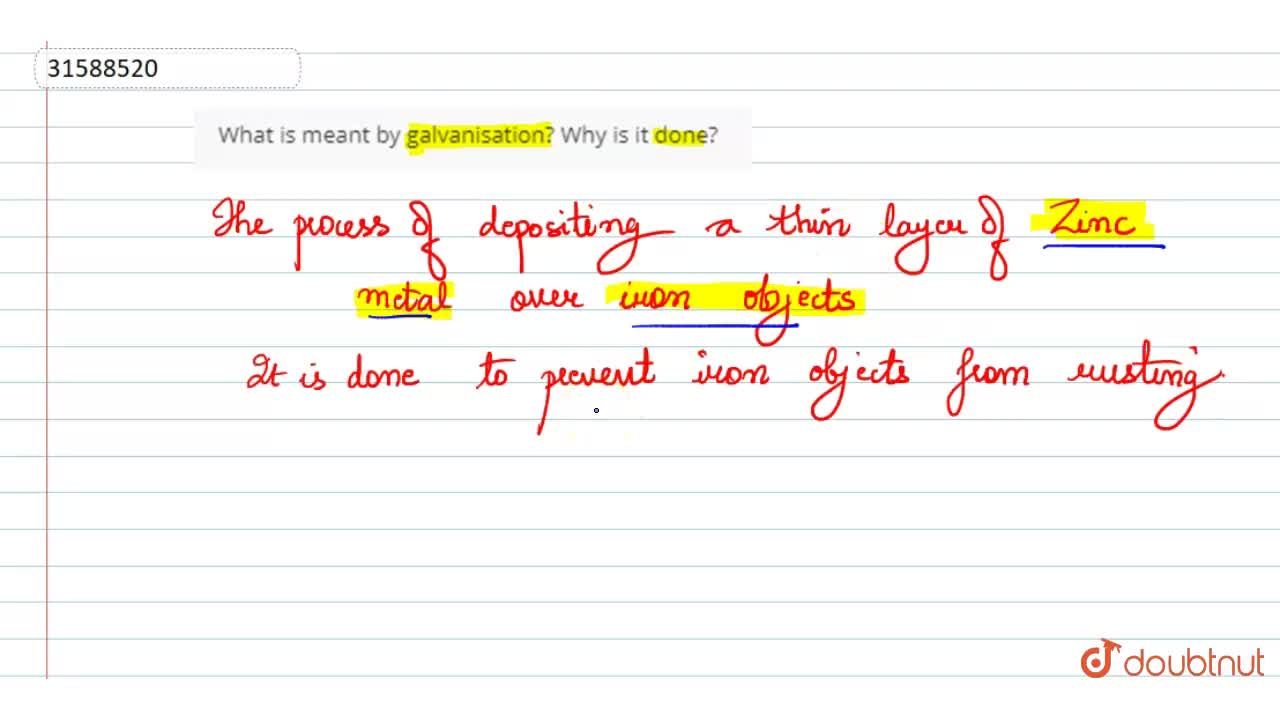 31588520
What is meant by galvanisation? Why is it done?
The process of depositing a thin layer of Zinc
metal over iron objects
It is done to prevent iron objects from rusting.
doubtnut